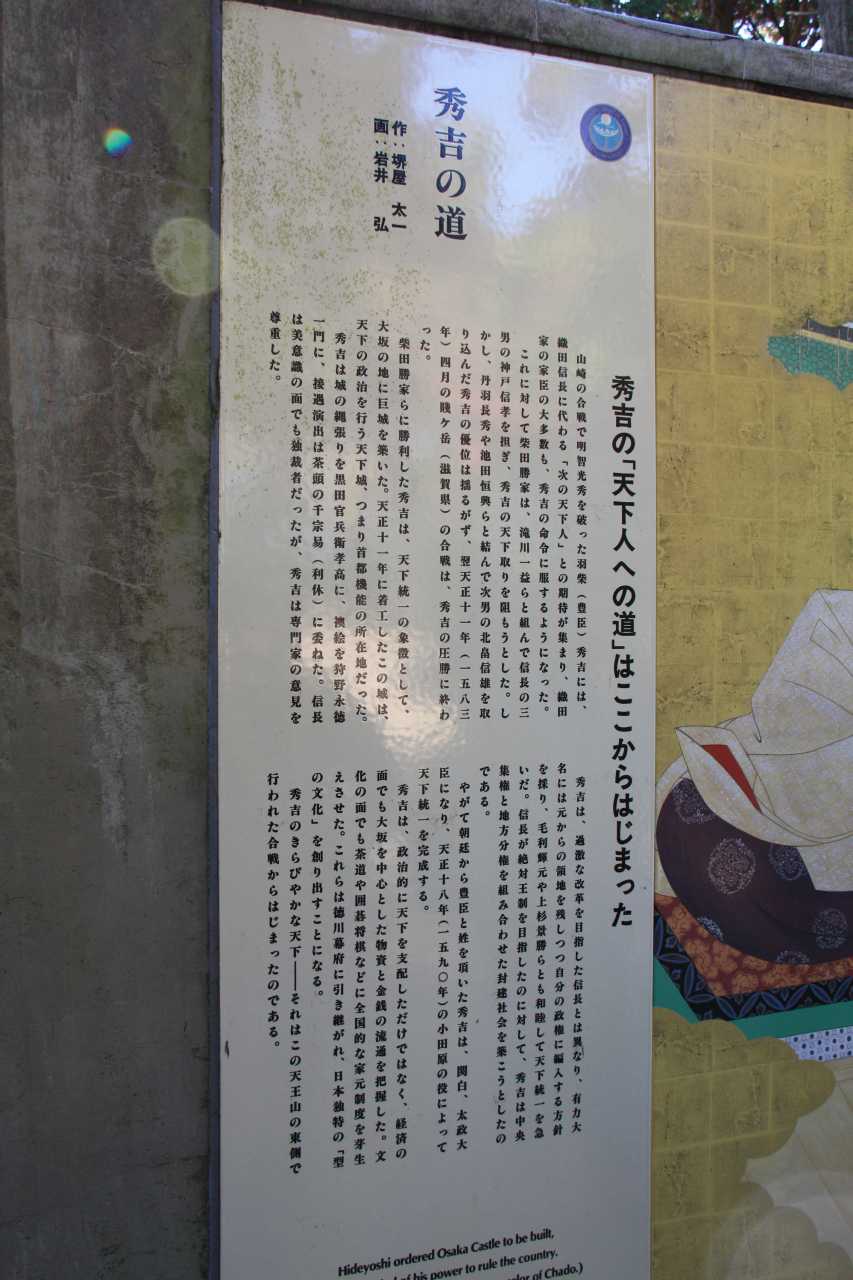 秀吉の道
作：堺屋 太一
画：岩井 弘
秀吉の「天下人への道」はここからはじまった
山崎の合戦で明智光秀を破った羽柴（豊臣）秀吉には、
織田信長に代わる「次の天下人」との期待が集まり、織田
家の家臣の大多数も、秀吉の命令に服するようになった。
これに対して柴田勝家は、滝川一益らと組んで信長の三
男の神戸信孝を担ぎ、秀吉の天下取りを阻もうとした。し
かし、丹羽長秀や池田恒興らと結んで次男の北畠信雄を取
り込んだ秀吉の優位は揺るがず、翌天正十一年（一五八三
年）四月の賤ケ岳（滋賀県）の合戦は、秀吉の圧勝に終わ
った。
柴田勝家らに勝利した秀吉は、天下統一の象徴として、
大坂の地に巨城を築いた。天正十一年に着工したこの城は、
天下の政治を行う天下城、つまり首都機能の所在地だった。
秀吉は城の縄張りを黒田官兵衛孝高に、襖絵を狩野永徳
一門に、接遇演出は茶頭の千宗易（利休）に委ねた。信長
は美意識の面でも独裁者だったが、秀吉は専門家の意見を
尊重した。
秀吉は、過激な改革を目指した信長とは異なり、有力大
名には元からの領地を残しつつ自分の政権に編入する方針
を採り、毛利輝元や上杉景勝らとも和睦して天下統一を急
いだ。信長が絶対王制を目指したのに対して、秀吉は中央
集権と地方分権を組み合わせた封建社会を築こうとしたの
である。
やがて朝廷から豊臣と姓を頂いた秀吉は、関白、太政大
臣になり、天正十八年（一五九〇年）の小田原の役によって
天下統一を完成する。
秀吉は、政治的に天下を支配しただけではなく、経済の
面でも大坂を中心とした物資と金銭の流通を把握した。文
化の面でも茶道や囲碁将棋などに全国的な家元制度を芽生
えさせた。これらは徳川幕府に引き継がれ、日本独特の「型
の文化」を創り出すことになる。
秀吉のきらびやかな天下――それはこの天王山の東側で
行われた合戦からはじまったのである。
Hideyoshi ordered Osaka Castle to be built,
of his power to rule the country.
of Chado.)